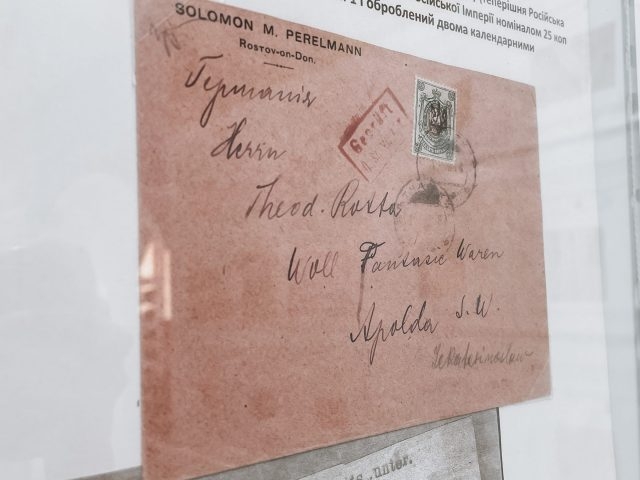 (теперішня Російська
російської Імперії номіналом 25 коп
1 і оброблений двома календарними
SOLOMON M. PERELMANN
Rostov-on-Don.
Германія
Herrn
Theod. Rotta
Woll Fantasie Waren
Apolda S. W.
Jekaterinoslaw
Geprüft
unter.